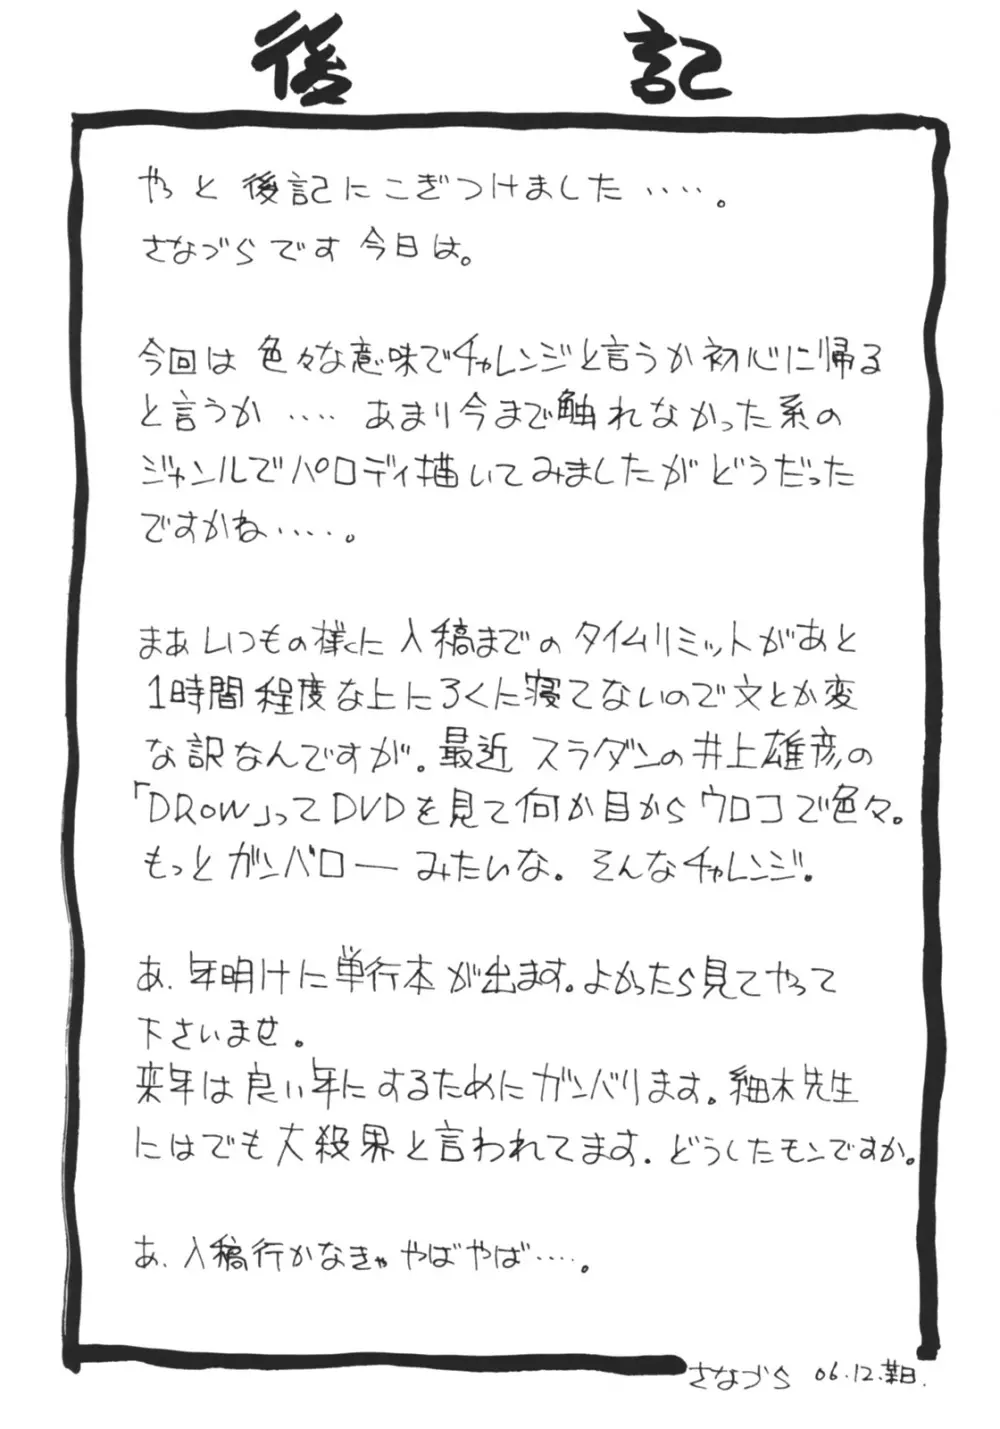 後記
やっと後記にこぎつけました‥‥。
さなづらです今日は。
今回は色々な意味でチャレンジと言うか初心に帰る
と言うか‥‥あまり今まで触れなかった系の
ジャンルでパロディ描いてみましたがどうだった
ですかね‥‥。
まあいつもの様に入稿までのタイムリミットがあと
1時間程度な上にろくに寝てないので文とか変
な訳なんですが。最近スラダンの井上雄彦の
「DROW」ってDVDを見て何か目からウロコで色々。
もっとガンバローみたいな。そんなチャレンジ。
あ、年明けに単行本が出ます。よかったら見てやって
下さいませ。
来年は良い年にするためにガンバります。細木先生
にはでも大殺界と言われてます。どうしたモンですか。
あ、入稿行かなきゃやばやば‥‥。
さなづら 06.12.